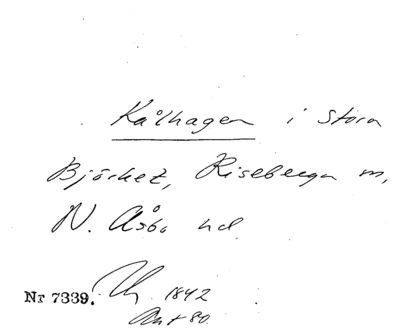 Kålhagen i Stora
Björket, Riseberga m,
N. Åsbo hd.
Nr 7339. 1842